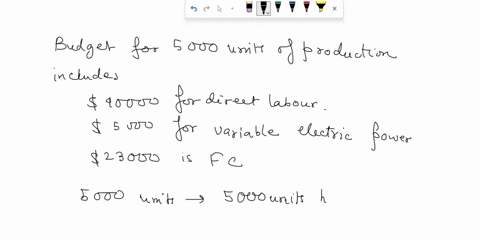 Budget for 5000 units of production
includes
$ 40000 for direct labour.
$ 5000 for variable electric power
$ 23000 is FC
5000 units → 5000 units h